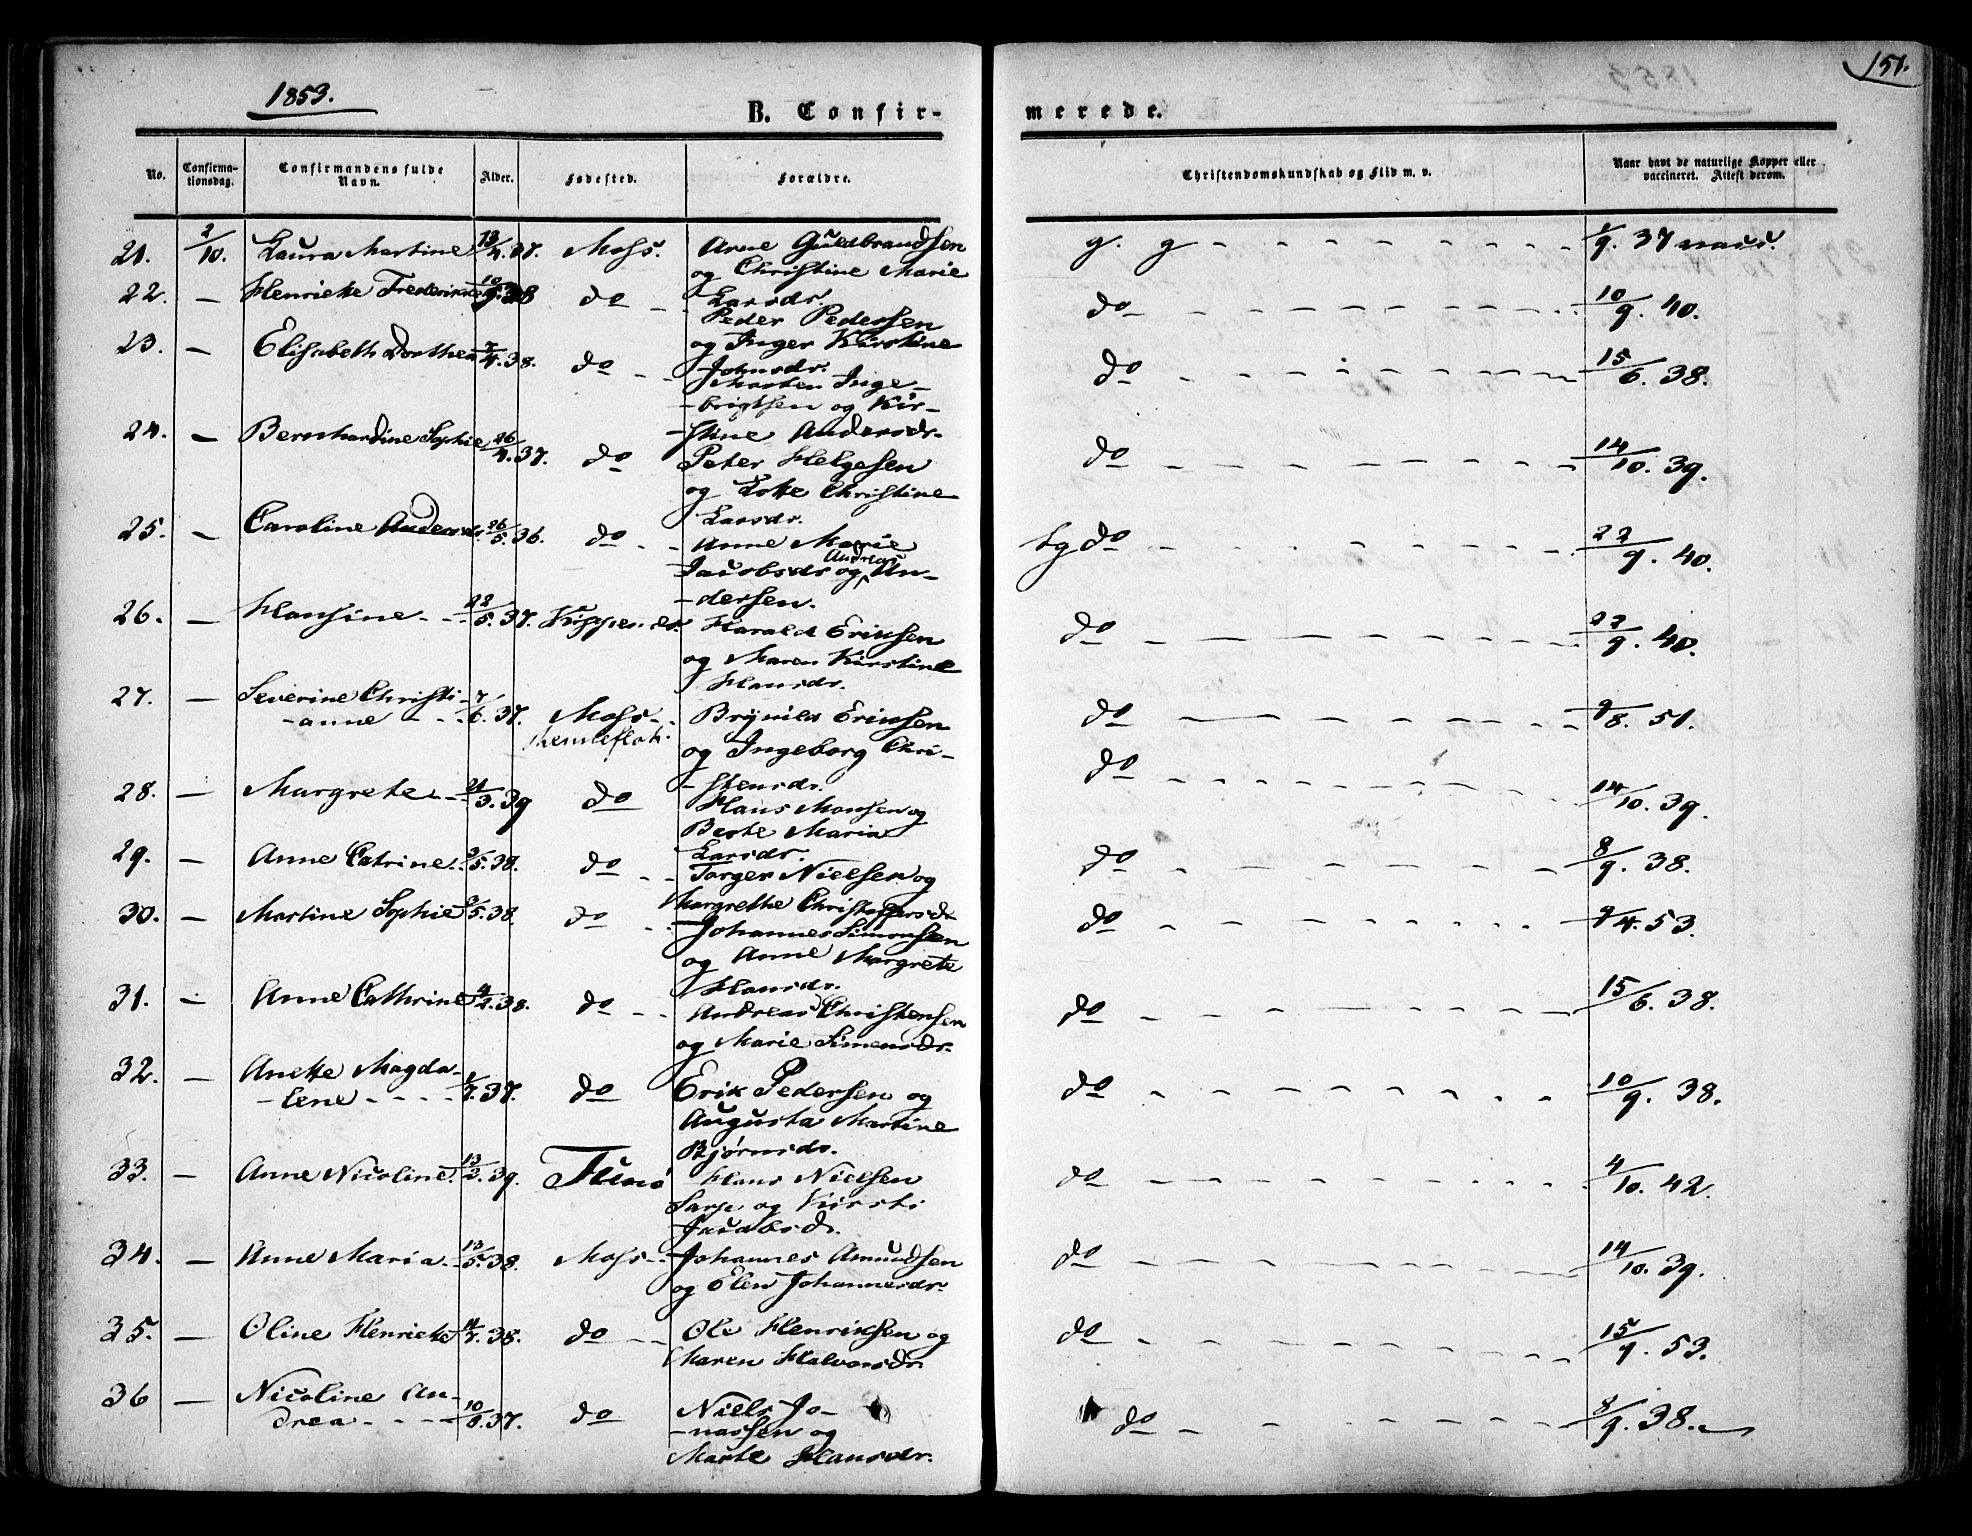 1853.
151.
B. Confir-
merede.
No.
Confirma-
tionsdag.
Confirmandens fulde
Navn.
Alder.
Fødested.
Forældre.
Christendomskundskab og Flid m. v.
Naar havt de naturlige Kopper eller
vaccineret. Attest derom.
21. 2/10. Laura Martine 13/4.37. Moss. Arne Guldbrandsen g. g 1/9. 37 vacc.
og Christine Marie
Larsdr.
22. — Henriette Frederikke 10/9.38 do Peder Pedersen do 10/9. 40.
og Inger Kirstine
Johnsdr.
23. — Elisabeth Dorthea 7/4.38. do Morten Inge- do 15/6. 38.
-brigtsen og Kir-
-stine Andersdr.
24. — Bernhardine Sophie 26/4.37. do Peter Helgesen do 14/10. 39.
og Lotte Christine
Larsdr.
25. — Caroline Andersdr. 26/5.36. do Anne Marie tg do 22/9. 40.
Andreas
Jacobsdr og An-
-dersen.
26. — Hansine 22/5.37. Harald Eriksen do 22/9. 40.
og Maren Kirstine
Hansdr.
27. — Severine Christi- 7/6.37. Moss Brynild Eriksen do 9/8. 51.
-anne
og Ingeborg Chri-
-stensdr.
28. — Margrete 21/3.39 do Hans Monsen og do 14/10. 39.
Berte Maria
Larsdr.
29. — Anne Catrine 3/5.38. do Torger Nielsen og do 8/9. 38.
Margrethe Christoffersdr
30. — Martine Sophie 3/5.38. do Johannes Simonsen do 9/4. 53.
og Anne Margrete
Hansdr.
31. — Anne Cathrine 4/2.38. do Andreas Christensen do 15/6. 38.
og Marie Simensdr.
32. — Anette Magda- 1/7.37. do Erik Pedersen og do 10/9. 38.
-lene
Augusta Martine
Bjørnsdr.
33. — Anne Nicoline 13/2.39. Hans Nielsen do 4/10. 42.
og Kirsti
Jacobsdr.
34. — Anne Maria 13/5.38. Moss Johannes Amundsen do 14/10. 39.
og Elen Johannesdr.
35. — Oline Henriette 14/7.38. do Ole Henriksen og do 15/9. 53.
Maren Halvorsdr.
36 — Nicoline An- 10/8.37. do Niels Jo- do 8/9. 38.
drea
-nassen og
Marte Hansdr.